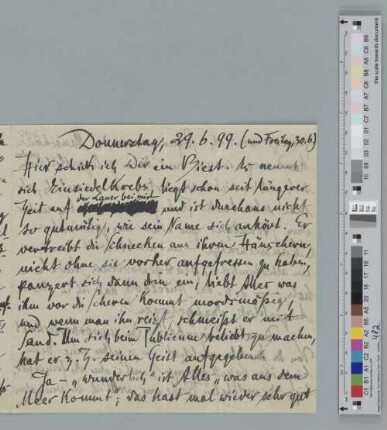 Donnerstag, 29.6.99. (und Freitag, 30.6)
Hier schick ich Dir ein Biest. Es nennt
sich Einsiedelkrebs, liegt schon seit längerer
der Lauer bei mir
Zeit auf und ist durchaus nicht
so gutmütig, wie sein Name sich anhört. Er
vertreibt die Schnecken aus ihren Häuschern,
nicht ohne sie vorher aufgefressen zu haben,
panzert sich dann drin ein, liebt Alles was
ihm vor die Scheren kommt mordmäßig,
und wenn man ihn reizt, schmeißt er mit
Sand. Um sich beim Publicum beliebt zu machen,
hat er z. Z. seinen Geist aufgegeben.
Ja – „wunderlich" ist Alles „was aus dem
Meer kommt"; das hast mal wieder sehr gut